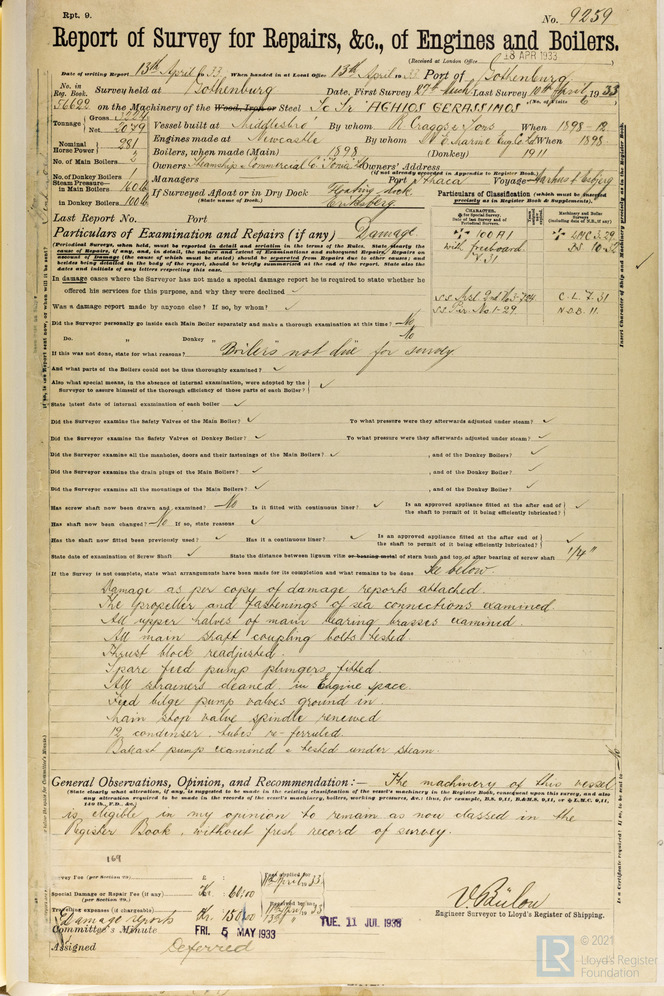 Rpt. 9.
No. 9259
Report of Survey for Repairs, &c., of Engines and Boilers.
(Received at London Office 18 APR 1933)
Date of writing Report 13th April 1933 When handed in at Local Office 13th April 1933 Port of Gothenburg
No. in Reg. Book. Survey held at Gothenburg Date, First Survey 27th Last Survey 10th April 1933
(No. of Visits 6)
56622 on the Machinery of the Wood, Iron or Steel "AGHIOS GERASSIMOS"
Tonnage Gross
Net 2079
Vessel built at Middlesbro' By whom R Craggs & Sons When 1898-12
Engines made at Newcastle By whom When 1898
Nominal Horse Power 281
Boilers, when made (Main) 1898 (Donkey) 1911
No. of Main Boilers 2
Owners Steamship Commercial Co. Owners' Address
(if not already recorded in Appendix to Register Book.)
No. of Donkey Boilers 1
Managers Port Ithaca Voyage Aarhus & Esbjerg
Steam Pressure in Main Boilers 160 lb
in Donkey Boilers 100 lb
If Surveyed Afloat or in Dry Dock Floating dock
(State name of Dock.) Eriksberg
Particulars of Classification (which must be inserted precisely as in the Register Book & Supplements).
Last Report No. Port
Particulars of Examination and Repairs (if any) Damage
(Periodical Surveys, when held, must be reported in detail and seriatim in the terms of the Rules. State clearly the cause of Repairs, if any, and, in detail, the nature and extent of Examinations and subsequent Repairs. Repairs on account of Damage (the cause of which must be stated) should be separated from Repairs due to other causes; and besides being detailed in the body of the report, should be briefly summarised at the end of the report. State also the dates and initials of any letters respecting this case.
CHARACTER.
Machinery and Boiler Surveys
100 A1
with freeboard
7.31
LMC 3.29
BS 10.32
C-L 7.31
N.D.B. 11.
In damage cases where the Surveyor has not made a special damage report he is required to state whether he offered his services for this purpose, and why they were declined ✓
Was a damage report made by anyone else? If so, by whom? ✓
Did the Surveyor personally go inside each Main Boiler separately and make a thorough examination at this time? No
Do. " Donkey " No
If this was not done, state for what reasons? Boilers not due for survey
And what parts of the Boilers could not be thus thoroughly examined? ✓
Also what special means, in the absence of internal examination, were adopted by the Surveyor to assure himself of the thorough efficiency of those parts of each Boiler? ✓
State latest date of internal examination of each boiler ✓
Did the Surveyor examine the Safety Valves of the Main Boiler? ✓ To what pressure were they afterwards adjusted under steam? ✓
Did the Surveyor examine the Safety Valves of Donkey Boiler? ✓ To what pressure were they afterwards adjusted under steam? ✓
Did the Surveyor examine all the manholes, doors and their fastenings of the Main Boilers? ✓ , and of the Donkey Boilers? ✓
Did the Surveyor examine the drain plugs of the Main Boilers? ✓ , and of the Donkey Boiler? ✓
Did the Surveyor examine all the mountings of the Main Boilers? ✓ , and of the Donkey Boiler? ✓
Has screw shaft now been drawn and examined? No Is it fitted with continuous liner? ✓ Is an approved appliance fitted at the after end of the shaft to permit of it being efficiently lubricated? ✓
Has shaft now been changed? No If so, state reasons ✓
Has the shaft now fitted been previously used? ✓ Has it a continuous liner? ✓ Is an approved appliance fitted at the after end of the shaft to permit of it being efficiently lubricated? ✓
State date of examination of Screw Shaft ✓ State the distance between lignum vitæ or bearing metal of stern bush and top of after bearing of screw shaft 1/4"
If the Survey is not complete, state what arrangements have been made for its completion and what remains to be done See below.
Damage as per copy of damage reports attached.
The propeller and fastenings of sea connections examined.
All upper halves of main bearing brasses examined.
All main shaft coupling bolts tested.
Thrust block readjusted.
Spare feed pump plungers fitted.
All strainers cleaned in Engine space.
Feed bilge pump valves ground in.
Main stop valve spindle renewed
12 condenser tubes re-ferruled.
Ballast pump examined & tested under steam.
General Observations, Opinion, and Recommendation:— The machinery of this vessel
(State clearly what alteration, if any, is suggested to be made in the existing classification of the vessel's machinery in the Register Book, consequent upon this survey, and also any alteration required to be made in the records of the vessel's machinery, boilers, working pressures, &c.; thus, for example, B.S. 9,11, B.&M.S. 9,11, or L.M.C. 9,11, 140 lb., F.D., &c.)
is eligible in my opinion to remain as now classed in the
Register Book, without fresh record of survey.
169
Survey Fee (per Section 29)
Special Damage or Repair Fee (if any) Kr. 60.00
(per Section 29.)
Travelling expenses (if chargeable)
Damage reports Kr. 150.00
Fees applied for
11th April 1933
Received by me
V. Bülow
Engineer Surveyor to Lloyd's Register of Shipping.
Committee's Minute FRI. 5 MAY 1933
TUE. 11 JUL 1933
Assigned Deferred
© 2021
Lloyd's Register
Foundation